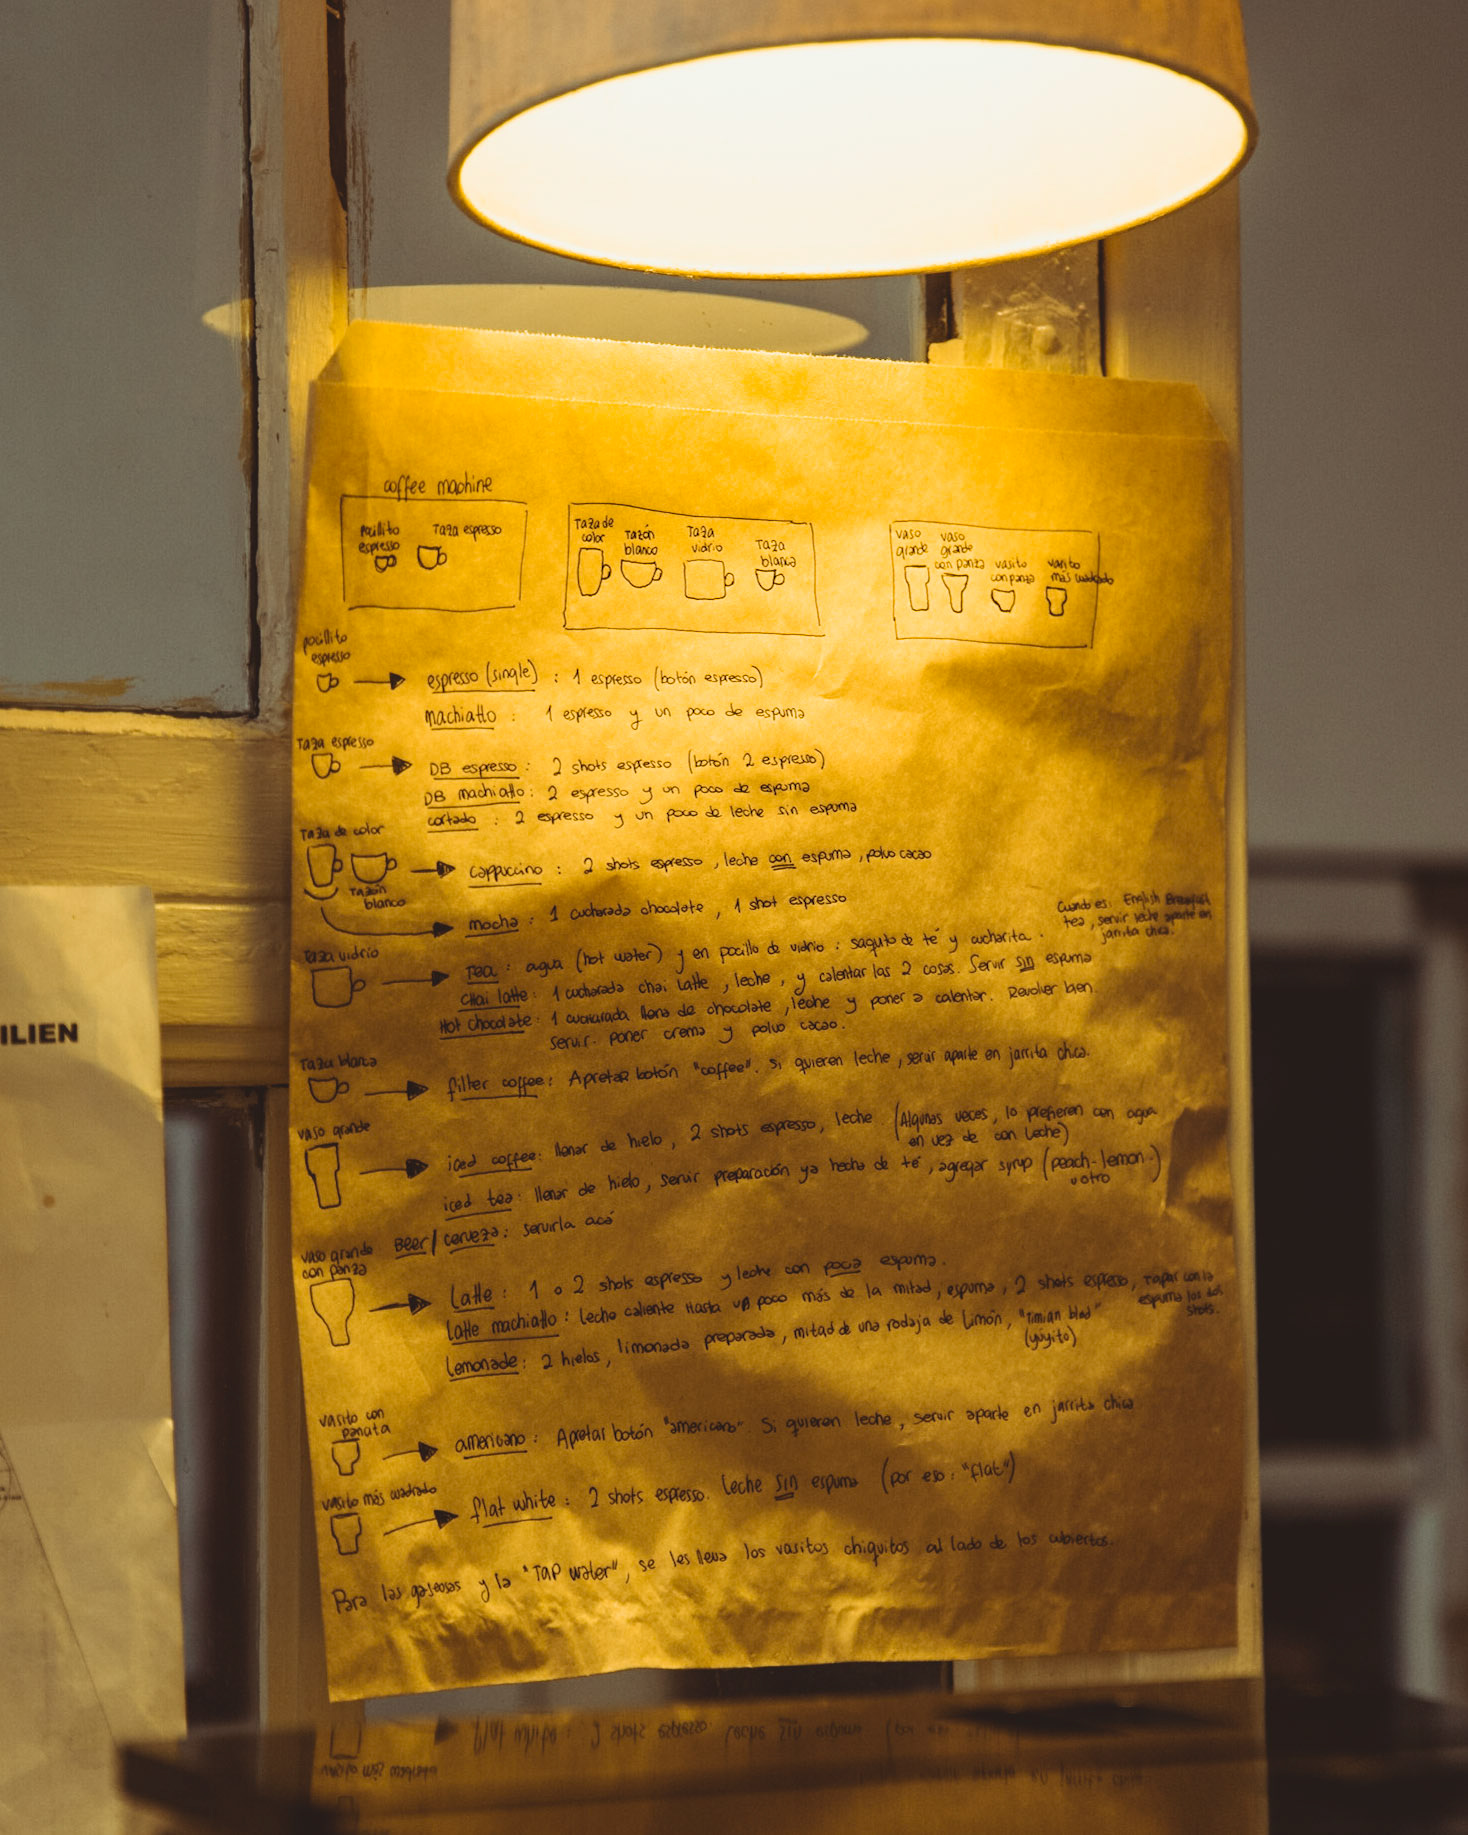 coffee machine
pocillito
espresso
Taza espresso
Taza de
color
Tazón
blanco
Taza
vidrio
Taza
blanca
vaso
grande
vaso
grande
con panza
vasito
con panza
vasito
más cuadrado
pocillito
espresso
espresso (single) : 1 espresso (botón espresso)
machiatto : 1 espresso y un poco de espuma
Taza espresso
DB espresso : 2 shots espresso (botón 2 espresso)
DB machiatto : 2 espresso y un poco de espuma
cortado : 2 espresso y un poco de leche sin espuma
Taza de color
Tazón
blanco
cappuccino : 2 shots espresso , leche con espuma , polvo cacao
mocha : 1 cucharada chocolate , 1 shot espresso
Cuando es: English Breakfast
tea, servir leche aparte en
jarrita chica.
Taza vidrio
Tea : agua (hot water) y en pocillo de vidrio : saquito de té y cucharita .
Chai latte : 1 cucharada chai latte , leche , y calentar las 2 cosas. Servir sin espuma
Hot chocolate : 1 cucharada llena de chocolate , leche y poner a calentar. Revolver bien.
servir. poner crema y polvo cacao.
Taza blanca
filter coffee : Apretar botón "coffee". Si quieren leche , servir aparte en jarrita chica.
vaso grande
iced coffee : llenar de hielo , 2 shots espresso , leche (Algunas veces , lo prefieren con agua
en vez de con leche)
iced tea : llenar de hielo , servir preparación ya hecha de té , agregar syrup (peach-lemon-)
u otro
Beer / cerveza : servirla acá
vaso grande
con panza
Latte : 1 o 2 shots espresso y leche con poca espuma.
Latte machiatto : leche caliente hasta un poco más de la mitad , espuma , 2 shots espresso , tapar con la
espuma los dos
shots.
Lemonade : 2 hielos , limonada preparada , mitad de una rodaja de limón , "Timian blad"
(yuyito)
vasito con
americano : Apretar botón "americano". Si quieren leche , servir aparte en jarrita chica
vasito más cuadrado
flat white : 2 shots espresso. Leche sin espuma (por eso : "flat")
Para las gaseosas y la "TAP water" , se les lleva los vasitos chiquitos al lado de los cubiertos.
ILIEN